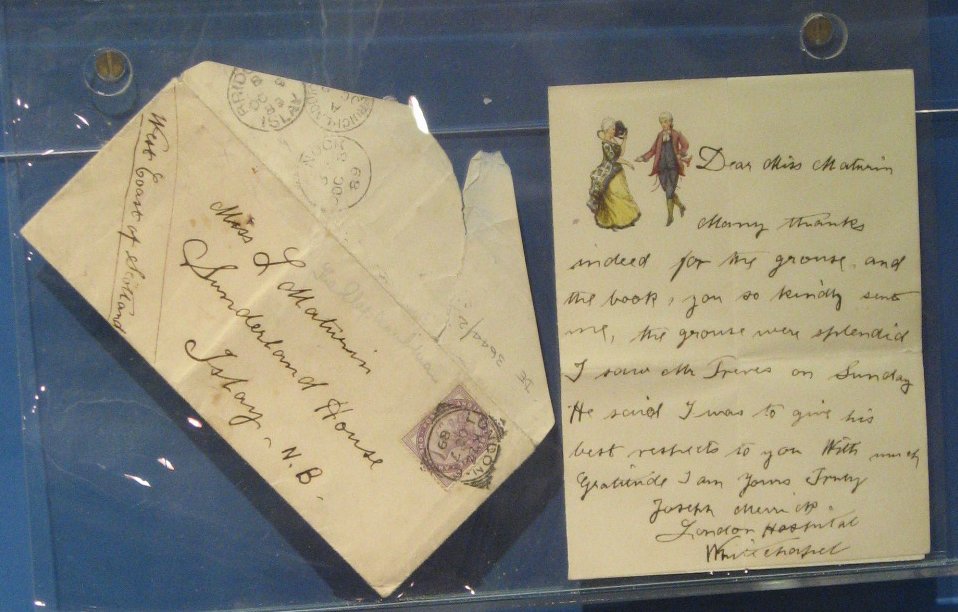 West Coast of Scotland
Miss L Maturin
Sunderland House
Islay - N.B.
ISLAY
LONDON.
89
Dear Miss Maturin
Many thanks
indeed for the grouse, and
the book, you so kindly sent
me, the grouse were splendid
I saw Mr Treves on Sunday
He said I was to give his
best respects to you With much
Gratitude I am Yours Truly
Joseph Merrick.
London Hospital
Whitechapel